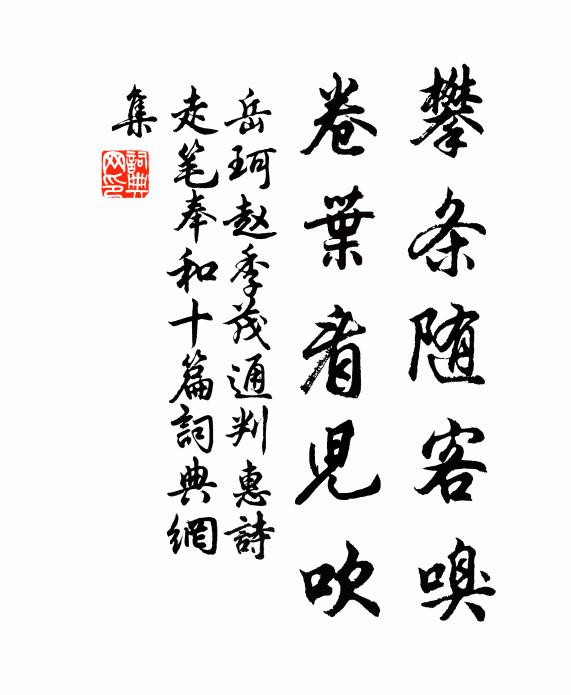 攀条随客嗅
卷葉看兒吹
岳珂赵季茂通判惠詩
走笔奉和十篇詞典網
集
詞典網印